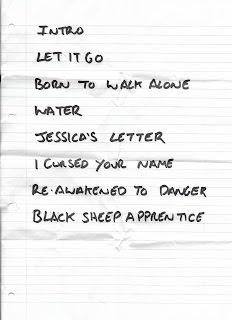 INTRO
LET IT GO
BORN TO WALK ALONE
WATER
JESSICA'S LETTER
I CURSED YOUR NAME
RE-AWAKENED TO DANGER
BLACK SHEEP APPRENTICE